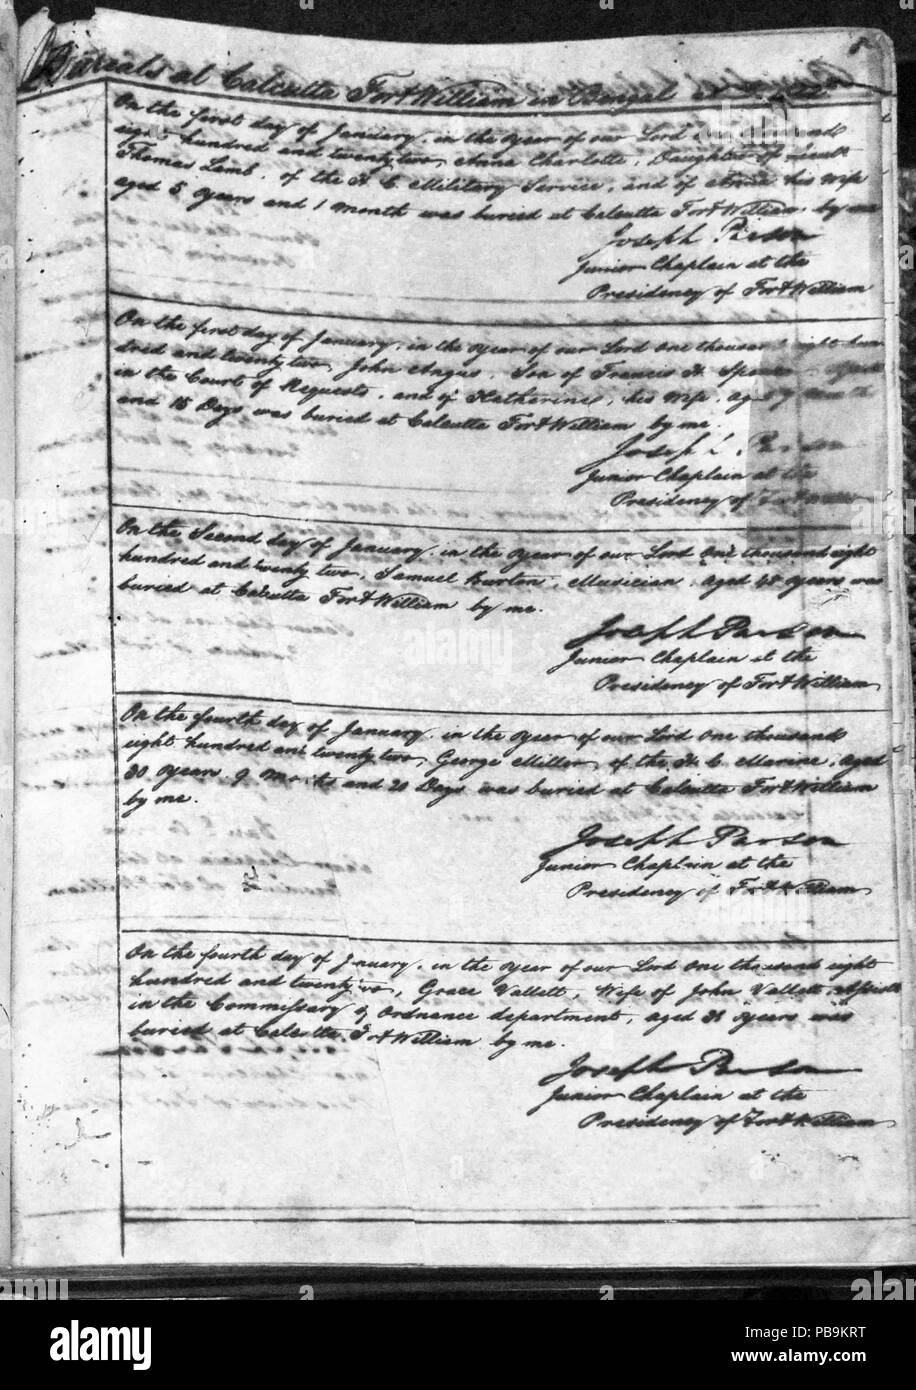 Burials at Calcutta Fort William in Bengal
On the first day of January, in the year of our Lord
eight hundred and twenty two, Anna Charlotte, Daughter of Lieut
Thomas Lamb, of the H. C. Military Service, and of his Wife
aged 5 years and 1 month was buried at Calcutta Fort William, by me
Joseph Parson
Junior Chaplain at the
Presidency of Fort William
On the first day of January, in the year of our Lord One thousand eight hun
dred and twenty two, John Angus, Son of Francis H.
in the Court of Requests, and of Katherine, his Wife, aged 7 Months
and 15 Days was buried at Calcutta Fort William by me.
Joseph Parson
Junior Chaplain at the
Presidency of Fort William
On the Second day of January, in the year of our Lord One thousand eight
hundred and twenty two, Samuel Burton, Musician, aged 48 years was
buried at Calcutta Fort William by me.
Joseph Parson
Junior Chaplain at the
Presidency of Fort William
On the fourth day of January, in the year of our Lord One thousand
eight hundred and twenty two, George Miller, of the H. C. Marine, aged
30 years 9 Months and 20 Days was buried at Calcutta Fort William
by me.
Joseph Parson
Junior Chaplain at the
Presidency of Fort William
On the fourth day of January, in the year of our Lord One thousand eight
hundred and twenty two, Grace Vallett, Wife of John Vallett
in the Commissary of Ordnance department, aged 31 years was
buried at Calcutta, Fort William by me.
Joseph Parson
Junior Chaplain at the
Presidency of Fort William
alamy
Image ID: PB9KRT
www.alamy.com